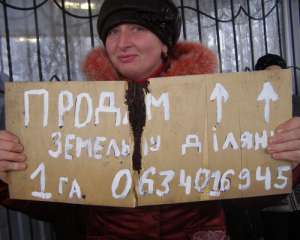 ПРОДАМ ↑ ↑
ЗЕМЕЛЬНУ ДІЛЯН
1 ГА 0634016945